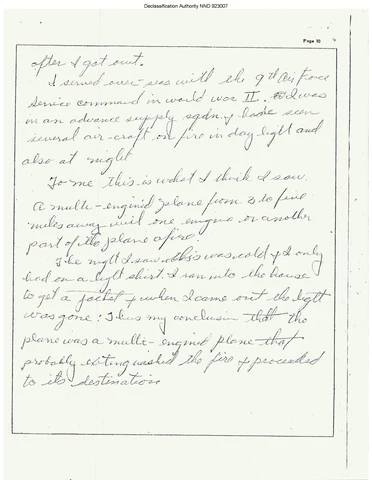 Declassification Authority NND 923007
Page 10
after I got out.
I served over-seas with the 9th Air Force
Service command in world war II. I was
in an advance supply sqdn. & have seen
several air-craft on fire in day light and
also at night
To me this is what I think I saw.
A multi-engined plane from 3 to five
miles away with one engine or another
part of the plane afire.
The night I saw this was cold & I only
had on a light shirt. I ran into the house
to get a jacket & when I came out the light
was gone: Thus my conclusion that the
plane was a multi-engined plane that
probably extinguished the fire & proceeded
to its destination